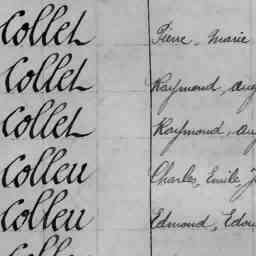 Collet Pierre, Marie
Collet Raymond, Aug
Collet Raymond, Aug
Colleu Charles, Emile J
Colleu Edmond, Edou